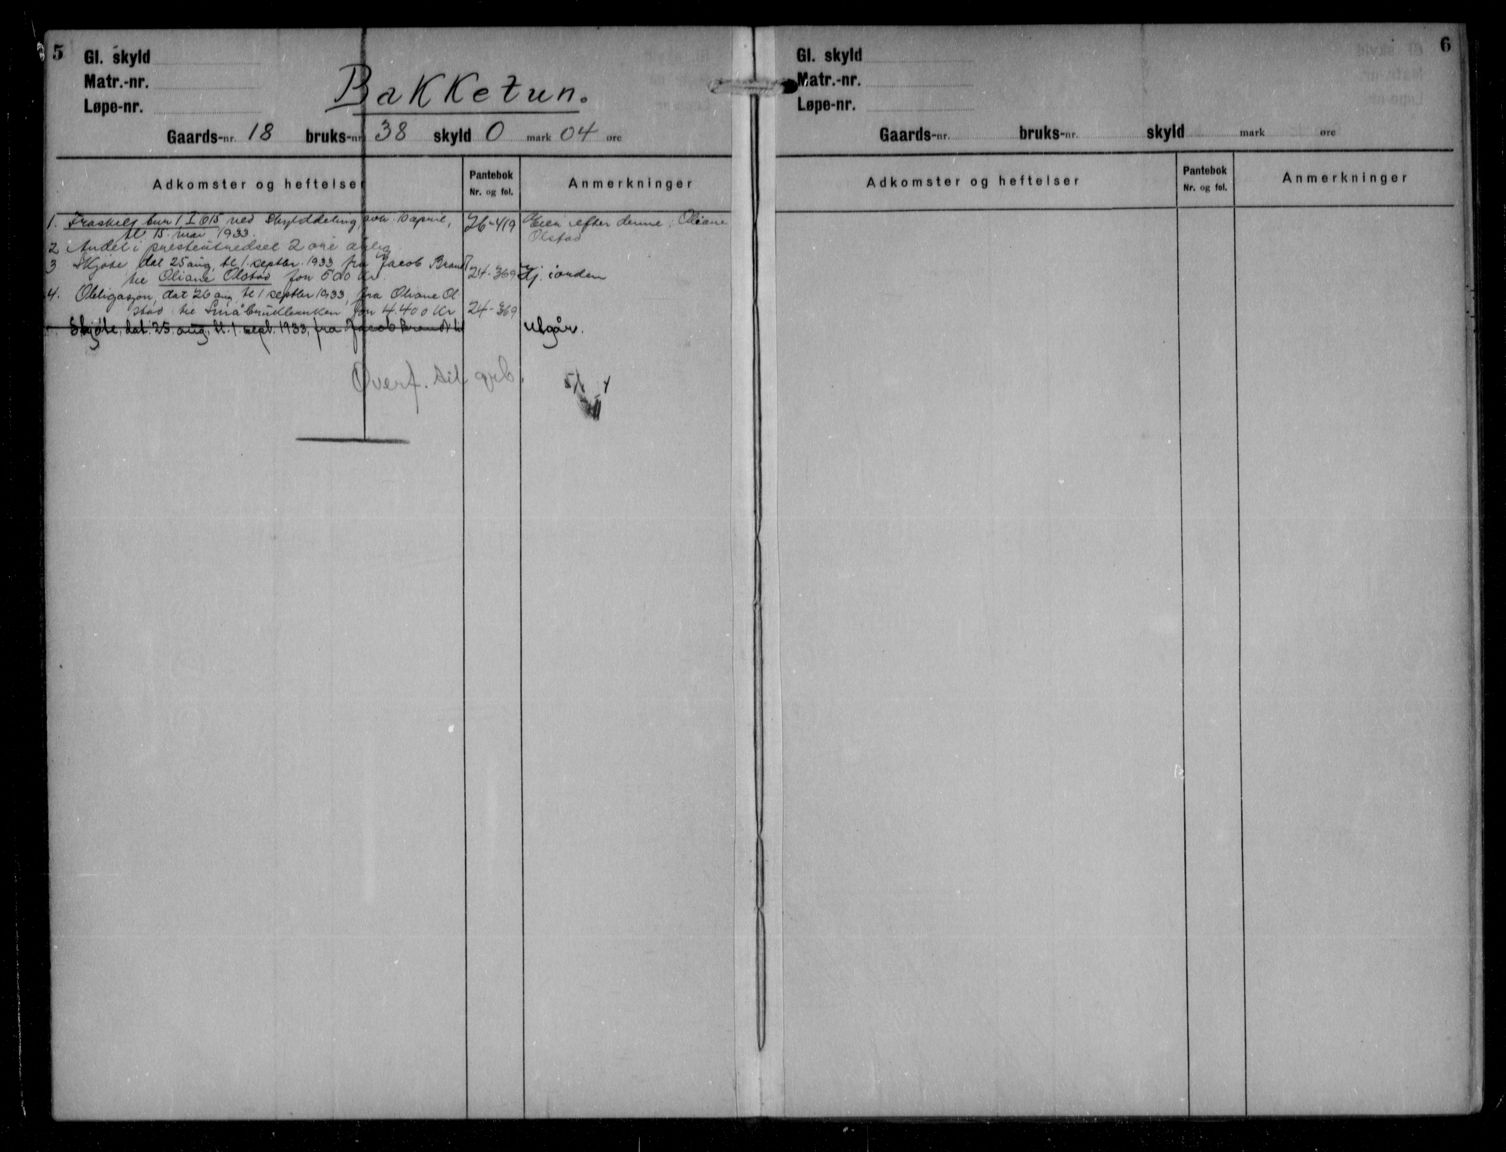 5
Gl. skyld
Matr.-nr.
Løpe-nr.
Bakketun.
Gaards-nr. 18 bruks-nr. 38 skyld 0 mark 04 øre
Adkomster og heftelser
Pantebok
Nr. og fol.
Anmerkninger
1. Fraskilt bnr 1 I 615 ved skylddeling, avh. 10 april,
tl. 15. mai 1933.
26-419
Eier efter denne: Oliane
Olstad
2 Andel i presteutredsel 2 øre årlig
3 Skjøte dat 25 aug, tl. 1. septbr. 1933 fra Jacob Brandt
til Oliane Olstad for 500 kr.
24-369
Hj. i orden
4. Obligasjon, dat 26 aug tl 1 septbr 1933, fra Oliane Ol
stad til Småbrukbanken for 4400 kr
24-369
Skjøte, dat. 25 aug, tl. 1 sept. 1933, fra Jacob Brandt til
utgår.
Overf. til grb.
6
Gl. skyld
Matr.-nr.
Løpe-nr.
Gaards-nr. bruks-nr. skyld mark øre
Adkomster og heftelser
Pantebok
Nr. og fol.
Anmerkninger